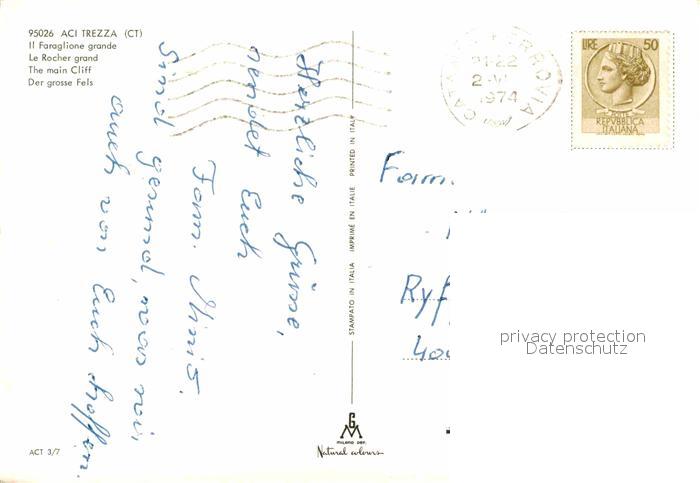 95026 ACI TREZZA (CT)
Il Faraglione grande
Le Rocher grand
The main Cliff
Der grosse Fels
LIRE 50
POSTE
REPVBBLICA
ITALIANA
CATANIA FERROVIA
21-22
2-VI
1974
Herzliche Grüsse,
sendet Euch
Fam.
Sind gesund, was wir
auch von Euch hoffen.
STAMPATO IN ITALIA IMPRIMÉ EN ITALIE PRINTED IN ITALY
Fam.
Ryf
400
privacy protection
Datenschutz
GM
MILANO DEP.
Natural colours
ACT 3/7